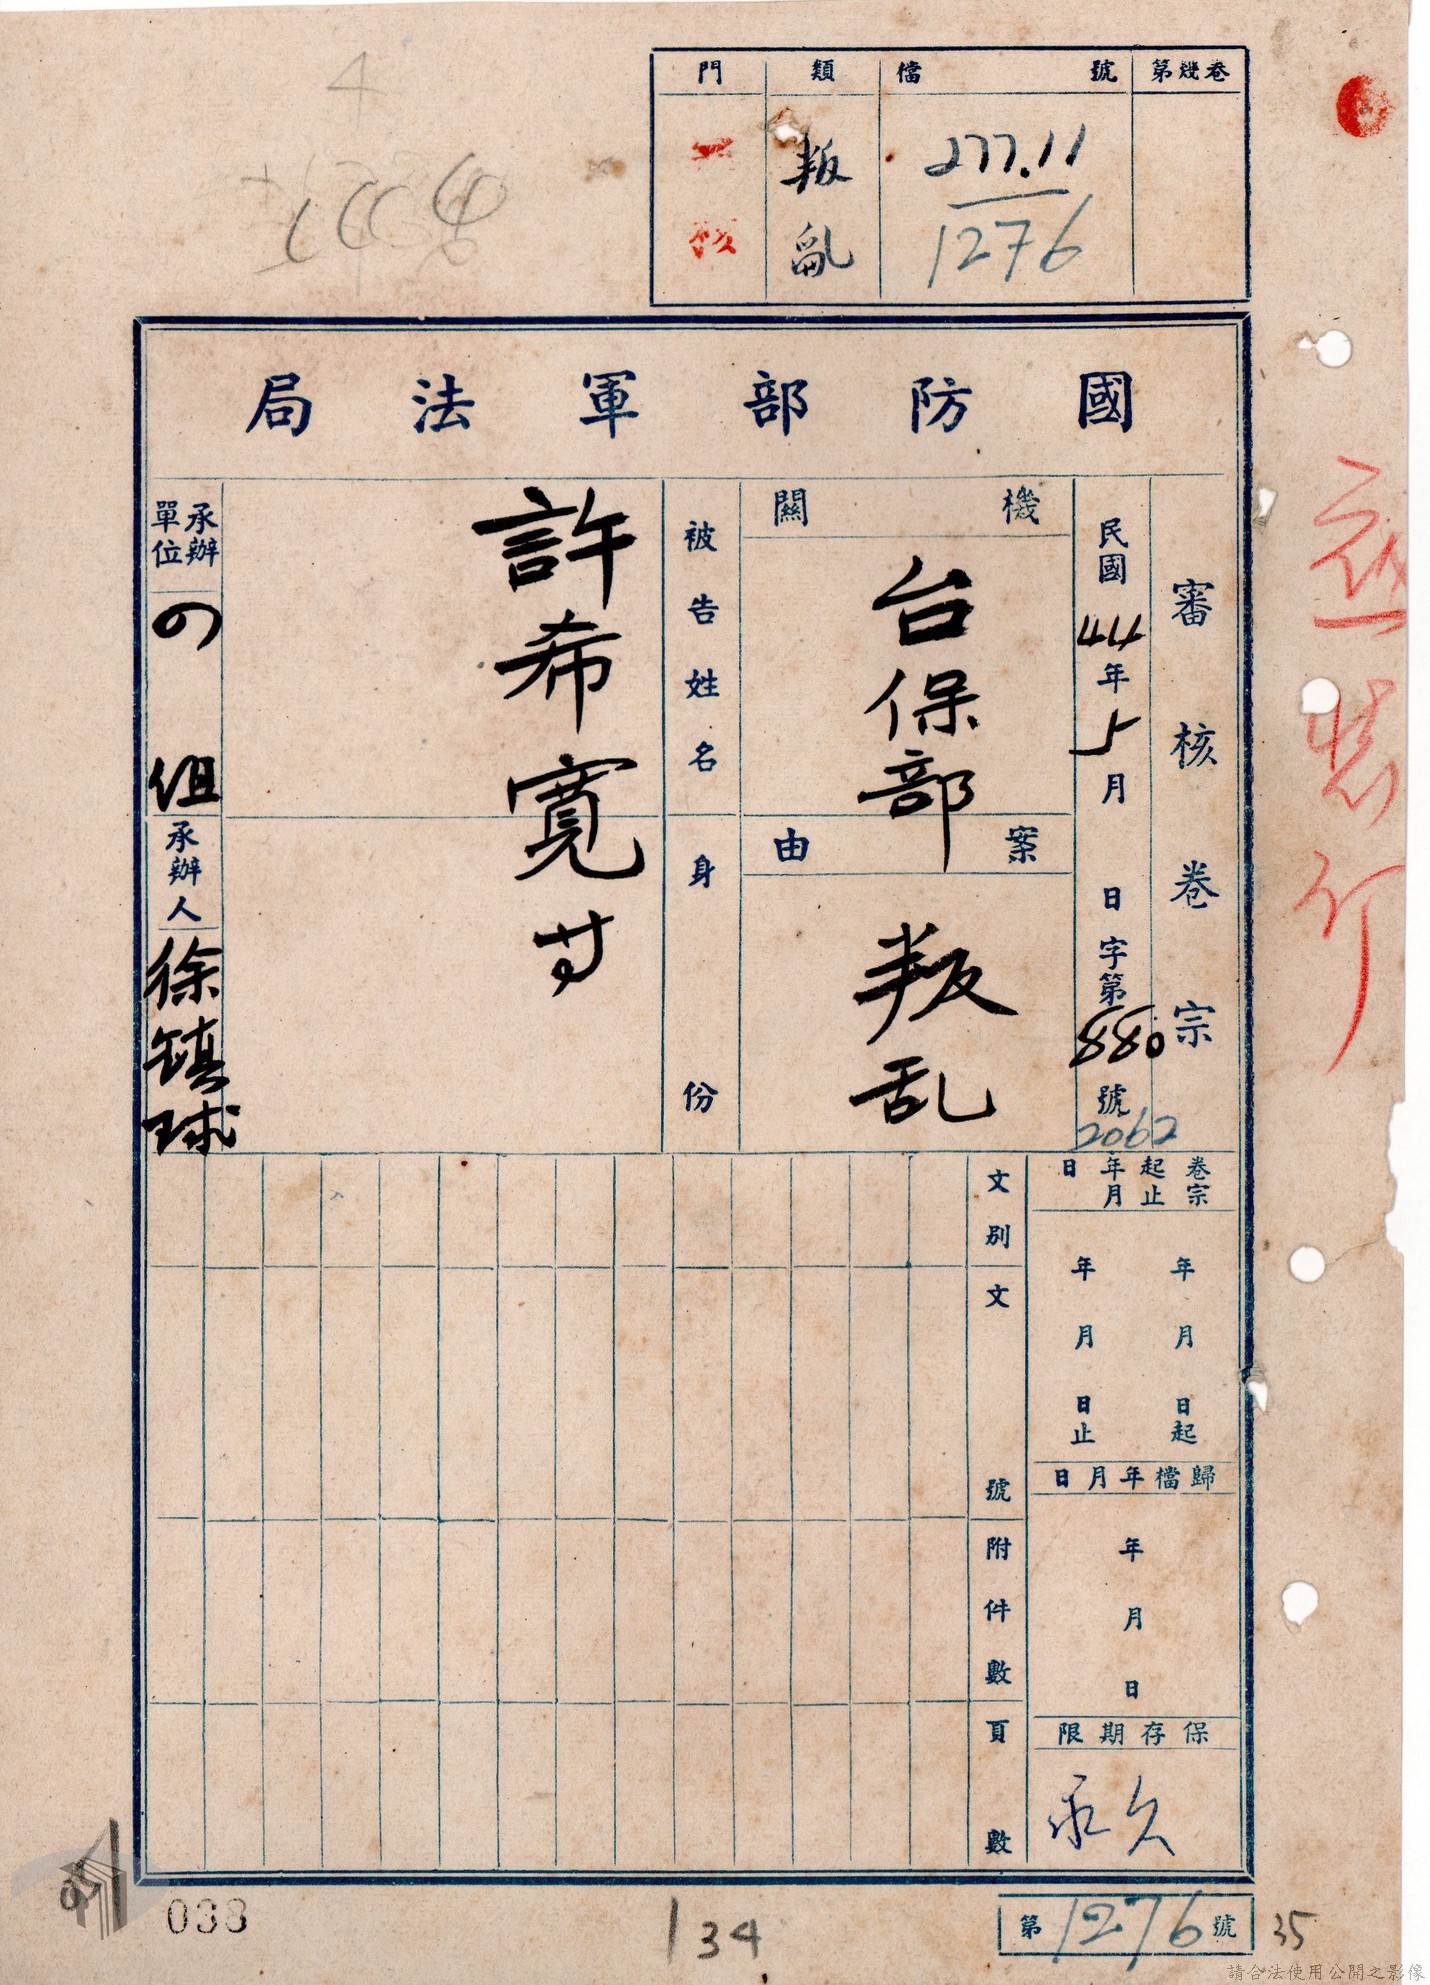 門
類
檔號
第幾卷
核
叛亂
277.11
1276
國防部軍法局
審核卷宗
民國44年5月 日 字第880號
2062
機關
台保部
案由
叛乱
被告姓名
身份
許希寬寸
承辦單位
組
承辦人
徐鎮球
卷宗起止年月日
年 月 日起
年 月 日止
歸檔年月日
年 月 日
保存期限
永久
文別
文號
附件數
頁數
038
134
第1276號
35
請合法使用公開之影像